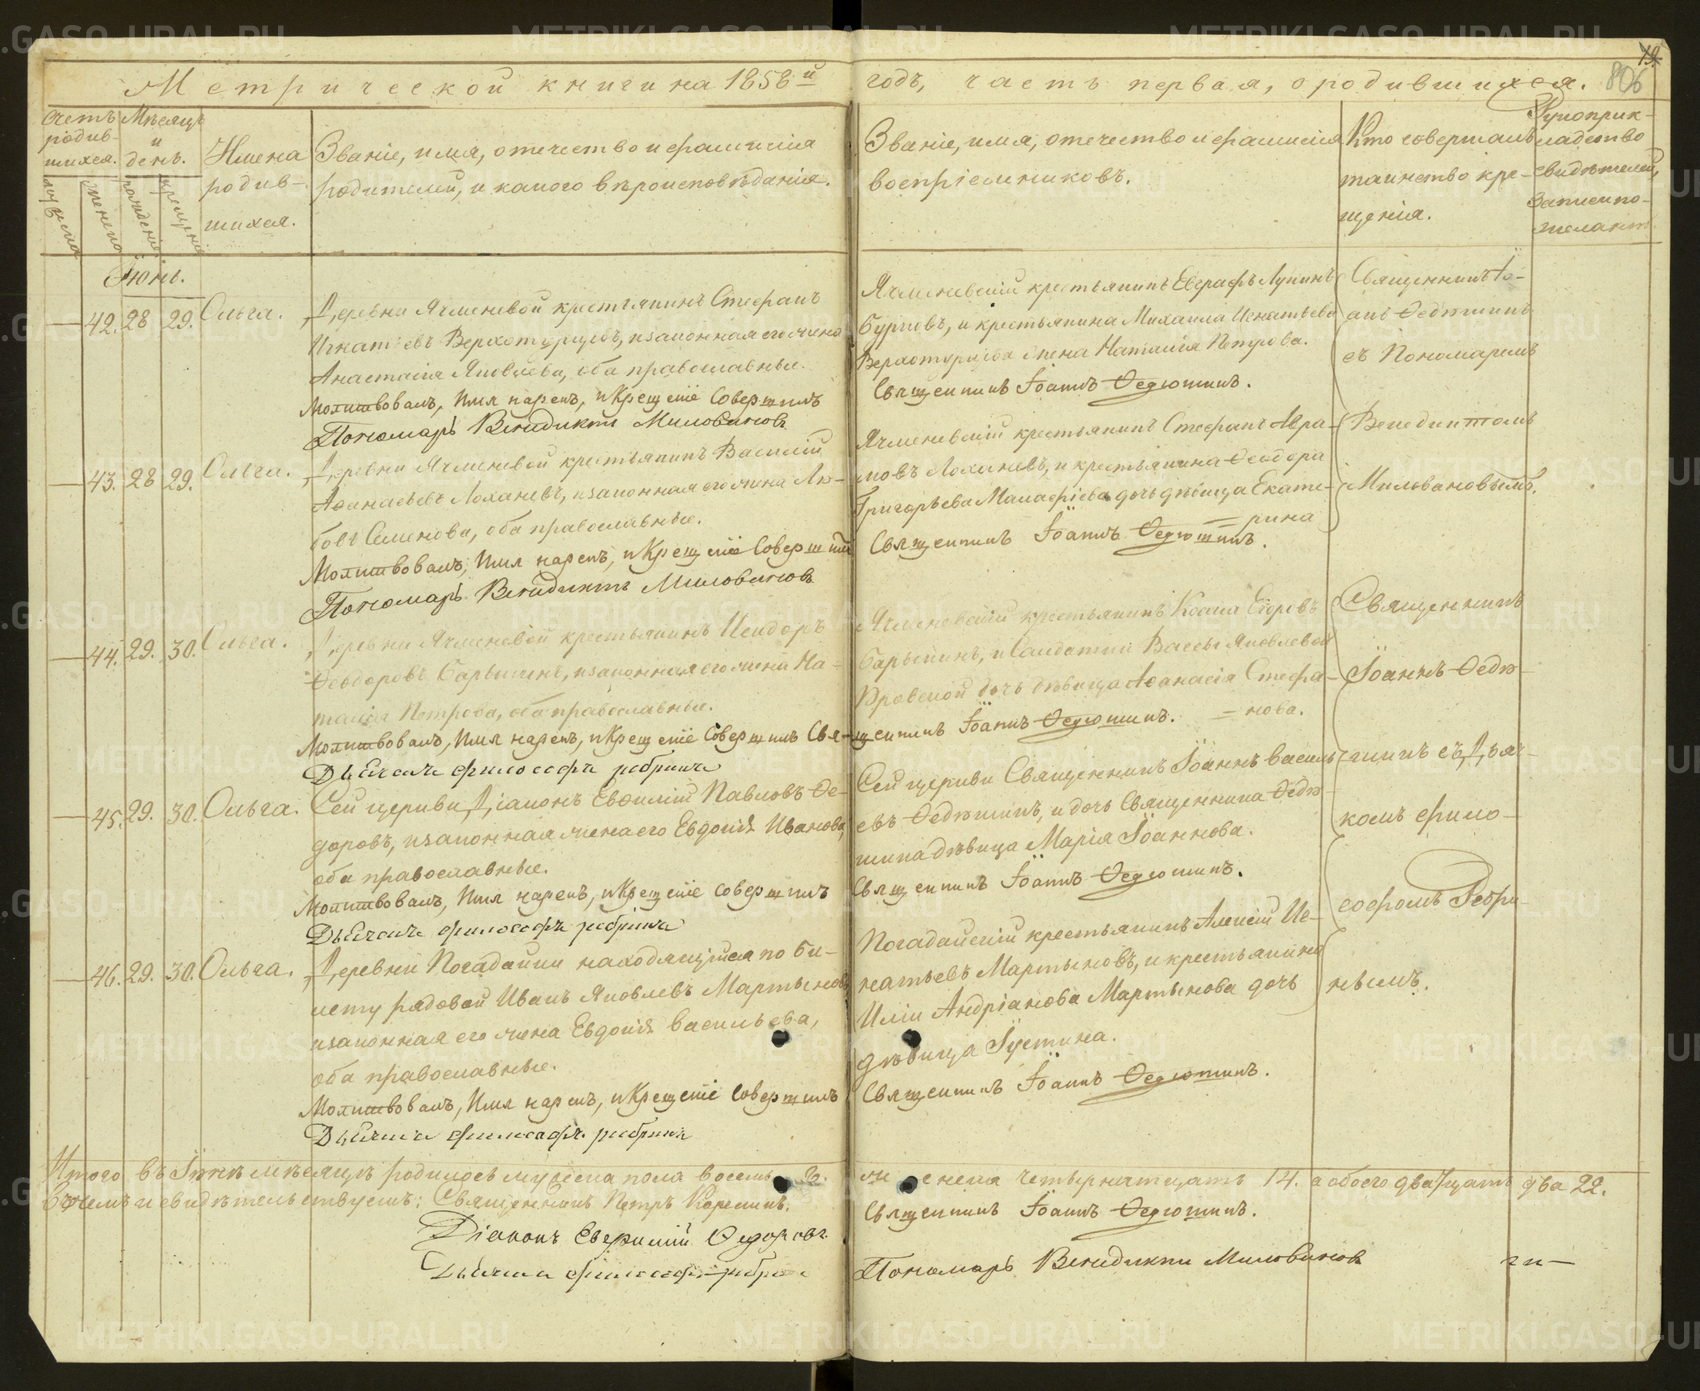 METRIKI.GASO-URAL.RU
19.
806
Метрической книги на 1858й годъ, часть первая, о родившихся.
Счетъ родив-
шихся.
Мѣсяцъ
и
день.
мужеска
женска
рожденія
крещенія
Имена
родив-
шихся.
Званіе, имя, отечество и фамилія
родителей, и какого вѣроисповѣданія.
Званіе, имя, отечество и фамилія
воспріемниковъ.
Кто совершалъ
таинство кре-
щенія.
Рукоприк-
ладство
свидѣтелей
записи по
желанію
Іюнь.
42. 28 29. Ольга.
Деревни Ячменевой крестьянинъ Стефанъ
Игнатьевъ Верхотурцовъ, и законная его жена
Анастасія Яковлева, оба православные.
Молитвовалъ, Имя нарекъ, и Крещеніе Совершилъ
Пономарь Венидиктъ Миловановъ
Ячменевскій крестьянинъ Евграфъ Лукинъ
Бурковъ, и крестьянина Михаила Игнатьева
Верхотурцова жена Наталія Петрова.
Священникъ Іоаннъ Ѳедюшинъ.
Священникъ Іо-
аннъ Ѳедюшинъ
съ Пономаремъ
43. 28 29. Ольга.
Деревни Ячменевой крестьянинъ Василій
Аѳанасьевъ Лоханевъ, и законная его жена Лю-
бовь Семенова, оба православные.
Молитвовалъ, Имя нарекъ, и Крещеніе Совершилъ
Пономарь Венидиктъ Миловановъ
Ячменевскій крестьянинъ Стефанъ Авра-
мовъ Лоханевъ, и крестьянина Ѳеодора
Григорьева Малафіева дочь дѣвица Екате-
рина
Священникъ Іоаннъ Ѳедюшинъ.
Венедиктомъ
Миловановымъ.
44. 29. 30. Ольга.
Деревни Ячменевой крестьянинъ Исидоръ
Ѳеодоровъ Барышинъ, и законная его жена На-
талія Петрова, оба православные.
Молитвовалъ, Имя нарекъ, и Крещеніе Совершилъ Свя-
щенникъ Іоаннъ Ѳедюшинъ.
Дьячекъ философъ ребринъ
Ячменевскій крестьянинъ Косма Егоровъ
Барышинъ, и Салдатки Вассы Яковлевой
дочь дѣвица Аѳанасія Стефа-
нова.
Священникъ
Іоаннъ Ѳедю-
45. 29. 30. Ольга.
Сей церкви Діаконъ Евѳилій Павловъ Ѳе-
доровъ, и законная жена его Евдокія Иванова,
оба православные.
Молитвовалъ, Имя нарекъ, и Крещеніе совершилъ
Дьячекъ философъ ребринъ
Сей церкви Священникъ Іоаннъ Василь-
евъ Ѳедюшинъ, и дочь Священника Ѳедю-
шина дѣвица Марія Іоаннова.
Священникъ Іоаннъ Ѳедюшинъ.
шинъ съ Дьяч-
комъ фило-
46. 29. 30. Ольга.
Деревни Погадайки находящійся по би-
лету рядовой Иванъ Яковлевъ Мартыновъ,
и законная его жена Евдокія Васильева,
оба православные.
Молитвовалъ, Имя нарекъ, и Крещеніе совершилъ
Дьячекъ философъ ребринъ
Погадайскій крестьянинъ Алексій Иг-
натьевъ Мартыновъ, и крестьянина
Иліи Андріанова Мартынова дочь
дѣвица Іустина.
Священникъ Іоаннъ Ѳедюшинъ.
софомъ Ребри-
нымъ.
Итого въ Іюнѣ мѣсяцѣ родилось мужеска пола восемь 8. женска четырнатцать 14. а обоего двадцать два 22.
Въ чемъ и свидѣтельствуемъ: Священникъ Петръ
Священникъ Іоаннъ Ѳедюшинъ.
Діаконъ Евѳилій Ѳедоровъ
Пономарь Венидиктъ Миловановъ
Дьячекъ философъ ребринъ